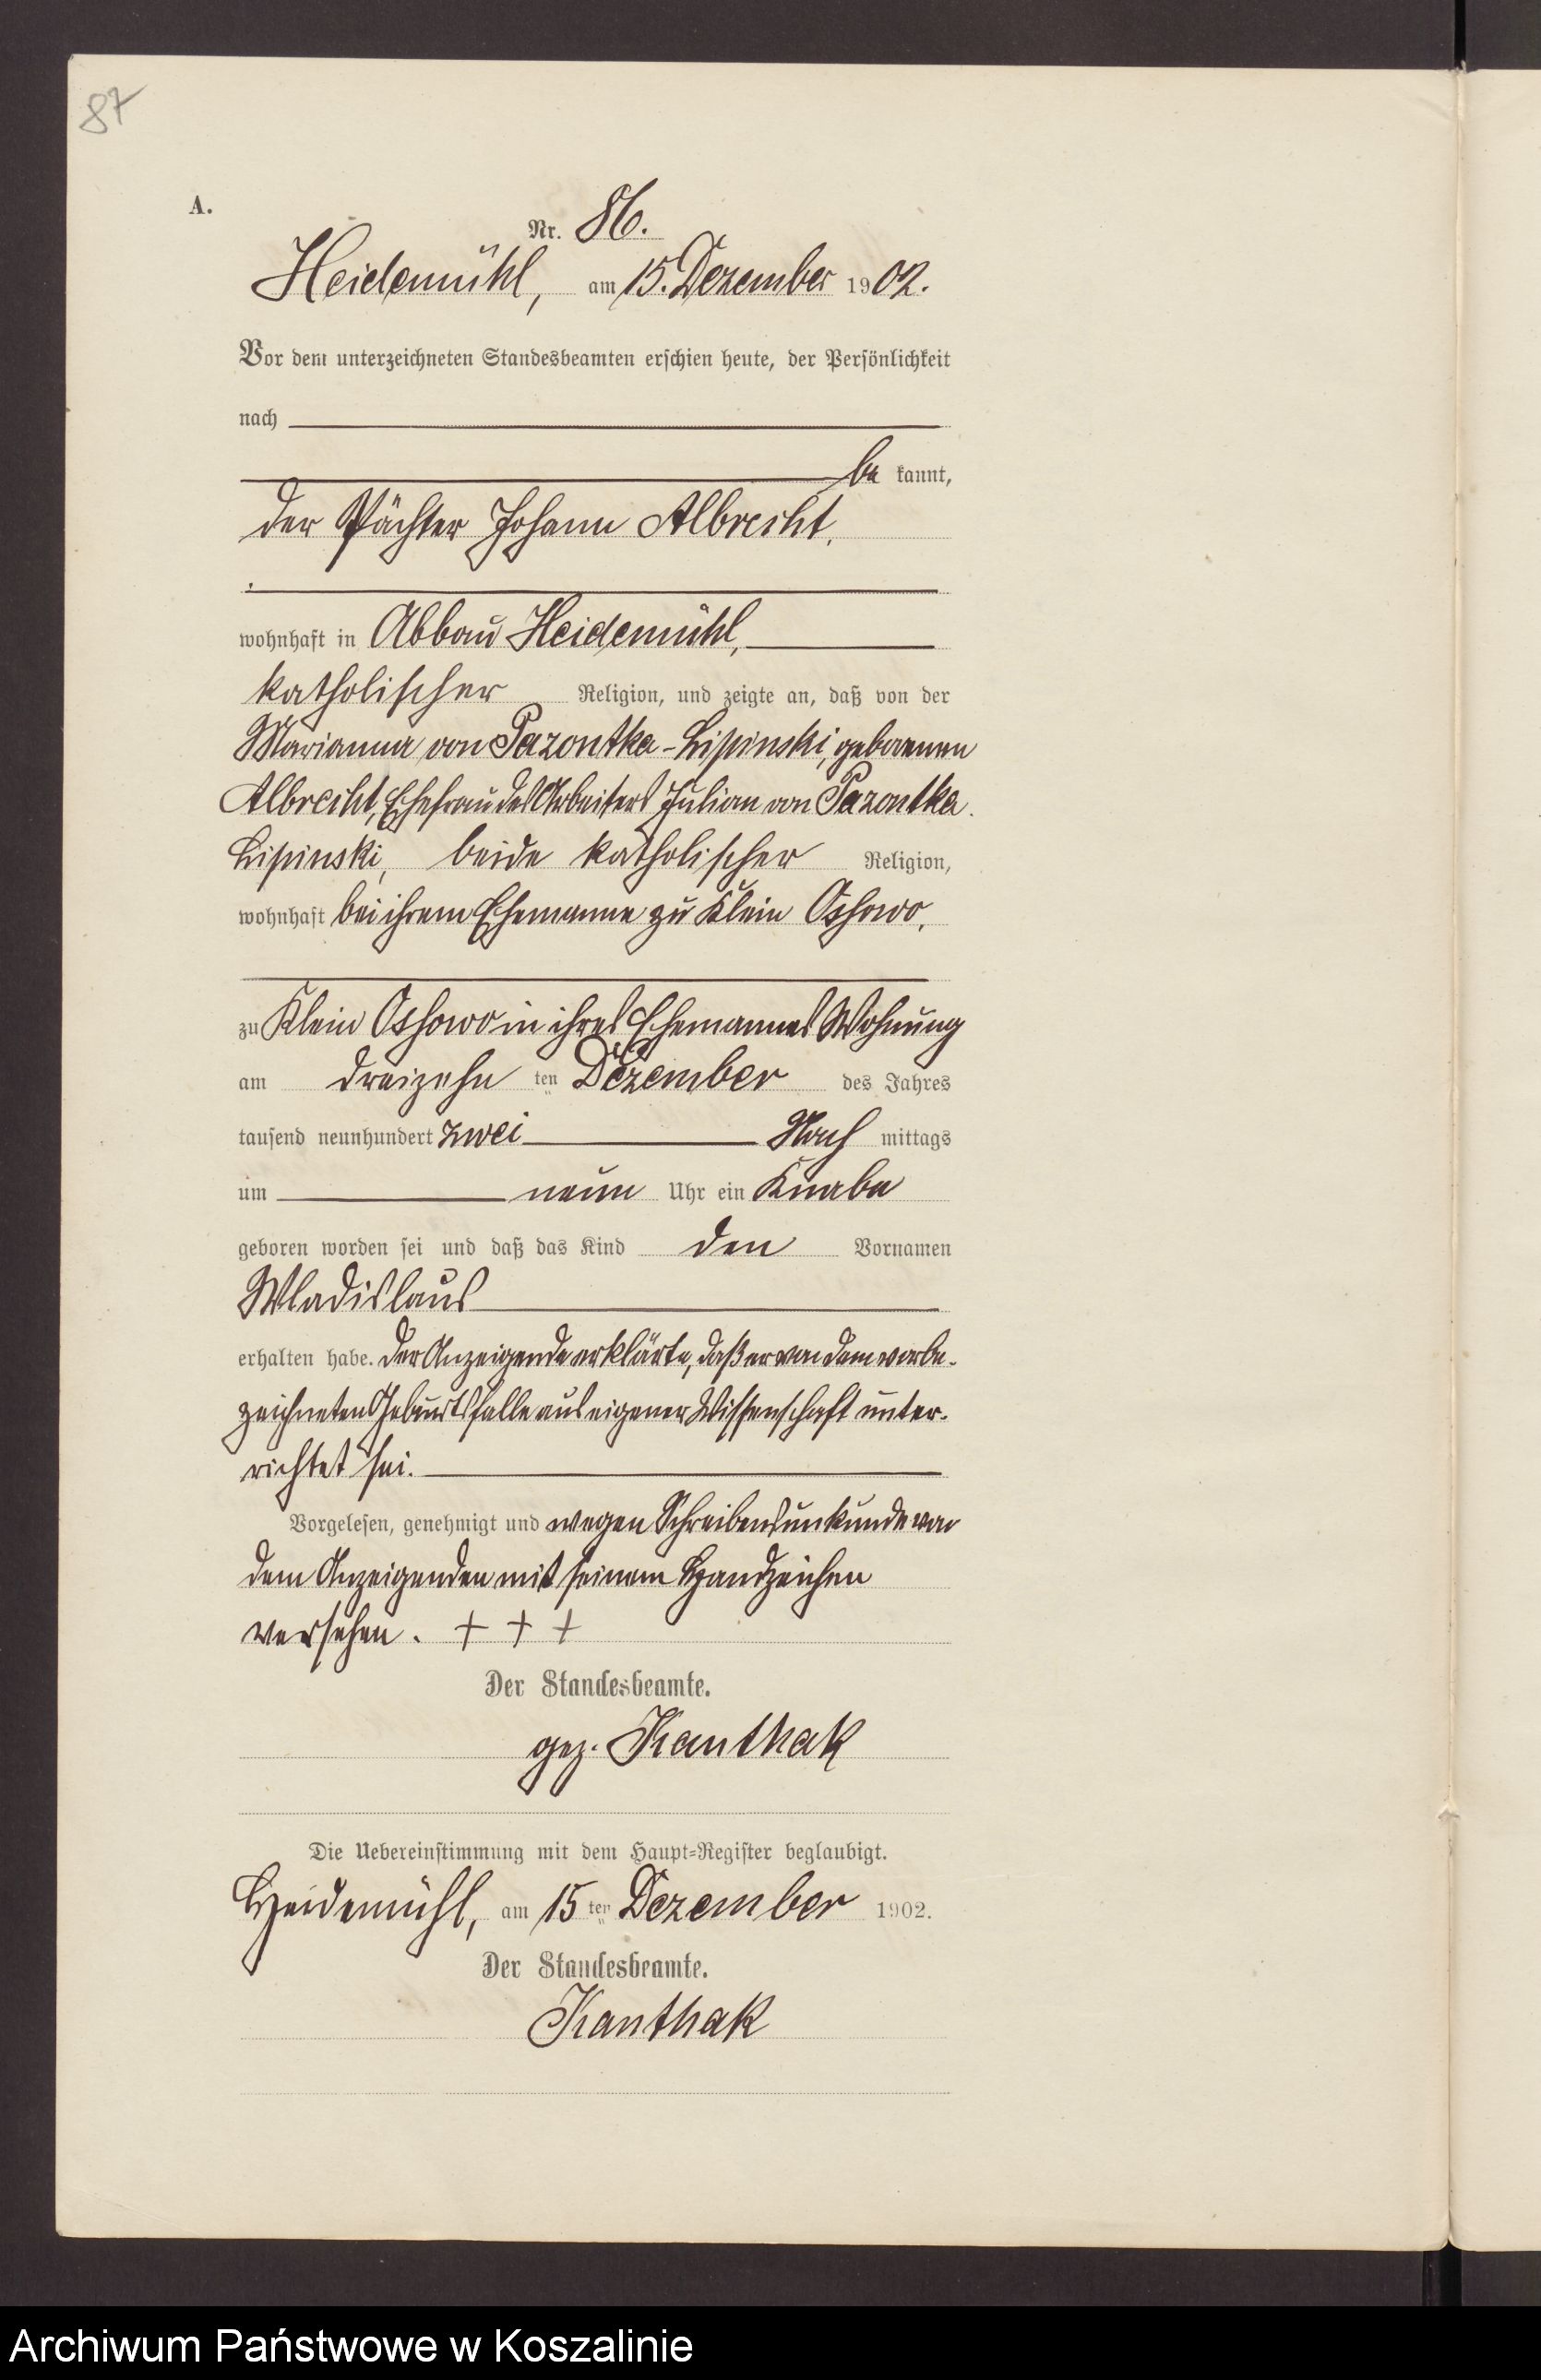 87
A.
Nr. 86.
Heidemühl, am 15. Dezember 1902.
Vor dem unterzeichneten Standesbeamten erschien heute, der Persönlichkeit
nach
be kannt,
der Pächter Johann Albrecht,
wohnhaft in Abbau Heidemühl,
katholischer Religion, und zeigte an, daß von der
Marianna von Pazontka-Lipinski, geborenen
Albrecht, Ehefrau des Arbeiters Julian von Pazontka-
Lipinski, beide katholischer Religion,
wohnhaft bei ihrem Ehemanne zu Klein Ossowo,
zu Klein Ossowo in ihres Ehemannes Wohnung
am dreizehn ten Dezember des Jahres
tausend neunhundert zwei Nach mittags
um neun Uhr ein Knabe
geboren worden sei und daß das Kind den Vornamen
Wladislaus
erhalten habe. Der Anzeigende erklärte, daß er von dem vorbe-
zeichneten Geburtsfalle aus eigener Wissenschaft unter-
richtet sei.
Vorgelesen, genehmigt und wegen Schreibensunkunde von
dem Anzeigenden mit seinem Handzeichen
versehen. + + +
Der Standesbeamte.
gez. Kanthak
Die Uebereinstimmung mit dem Haupt-Register beglaubigt.
Heidemühl, am 15 ten Dezember 1902.
Der Standesbeamte.
Kanthak
Archiwum Państwowe w Koszalinie